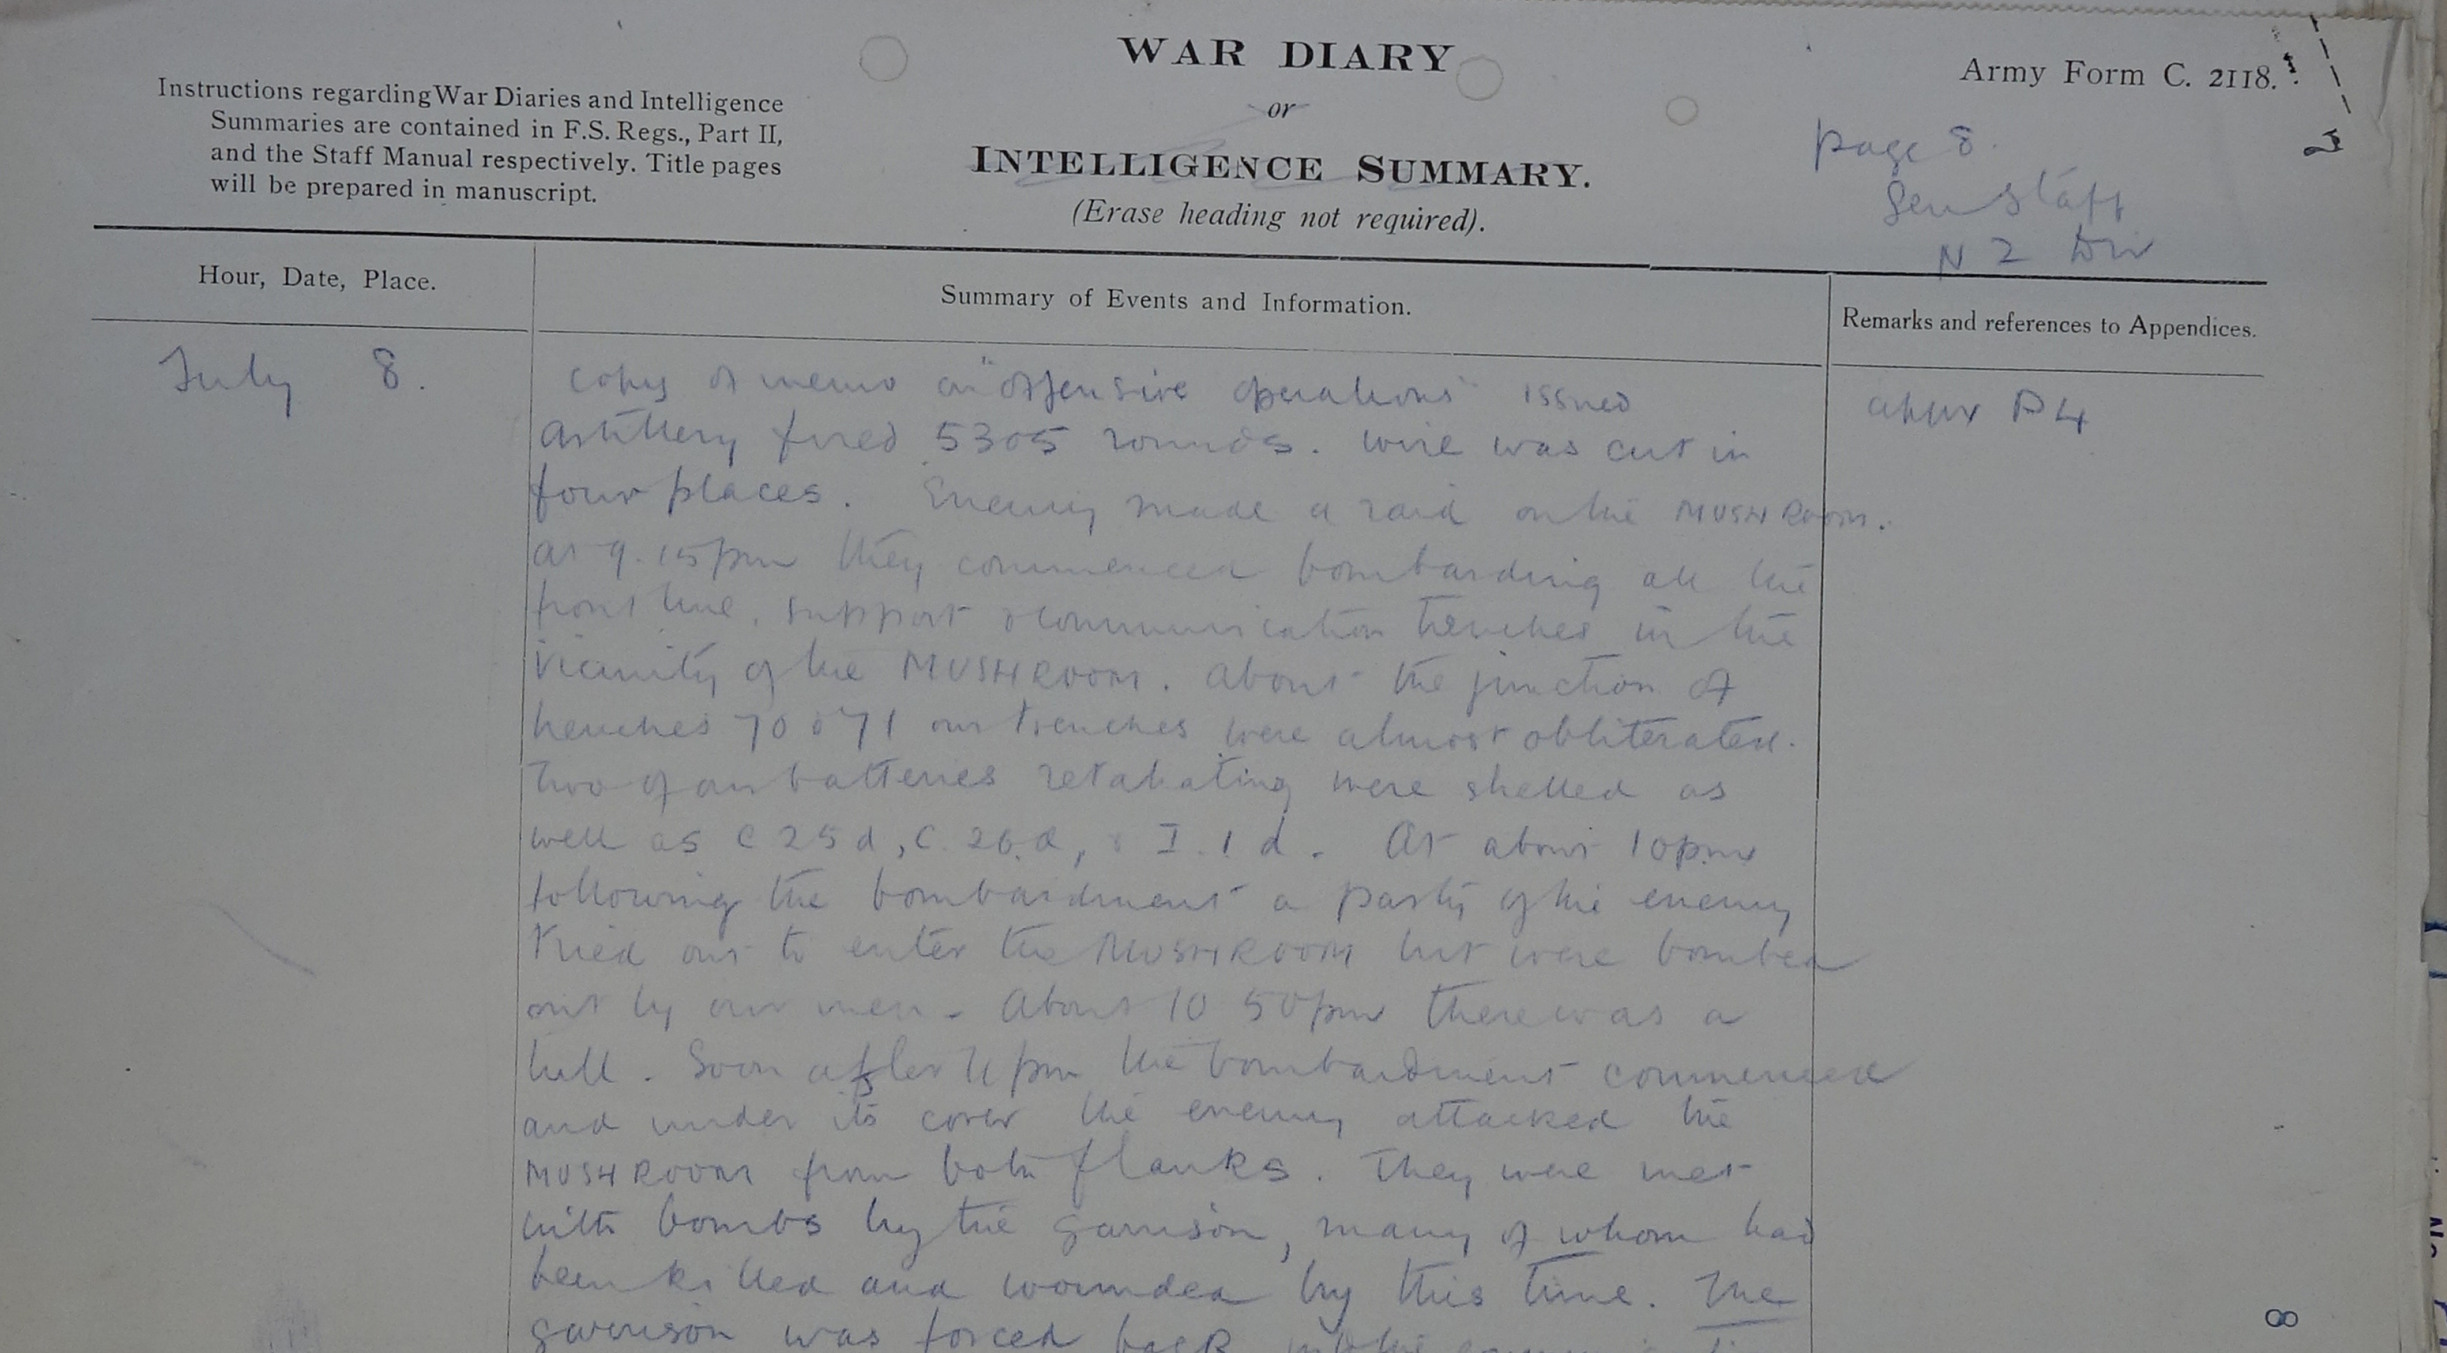 WAR DIARY
or
INTELLIGENCE SUMMARY.
(Erase heading not required).
Instructions regarding War Diaries and Intelligence
Summaries are contained in F.S. Regs., Part II,
and the Staff Manual respectively. Title pages
will be prepared in manuscript.
Army Form C. 2118.
page 8.
Gen Staff
N Z Div
Hour, Date, Place.
Summary of Events and Information.
Remarks and references to Appendices.
July 8.
Copy of memo on "offensive operations" issued
appx P4
Artillery fired 5305 rounds. Wire was cut in
four places. Enemy made a raid on the MUSHROOM.
at 9.15pm they commenced bombarding all the
front line, support & communication trenches in the
vicinity of the MUSHROOM. About the junction of
trenches 70 & 71 our trenches were almost obliterated.
Two of our batteries retaliating were shelled as
well as C 25 d, C. 26. d, & I. 1 d. At about 10pm
following the bombardment a party of the enemy
tried out to enter the MUSHROOM but were bombed
out by our men. About 10 50pm there was a
lull. Soon after 11 pm the bombardment commenced
and under its cover the enemy attacked the
MUSHROOM from both flanks. They were met
with bombs by the garrison, many of whom had
been killed and wounded by this time. The
garrison was forced back into the
8